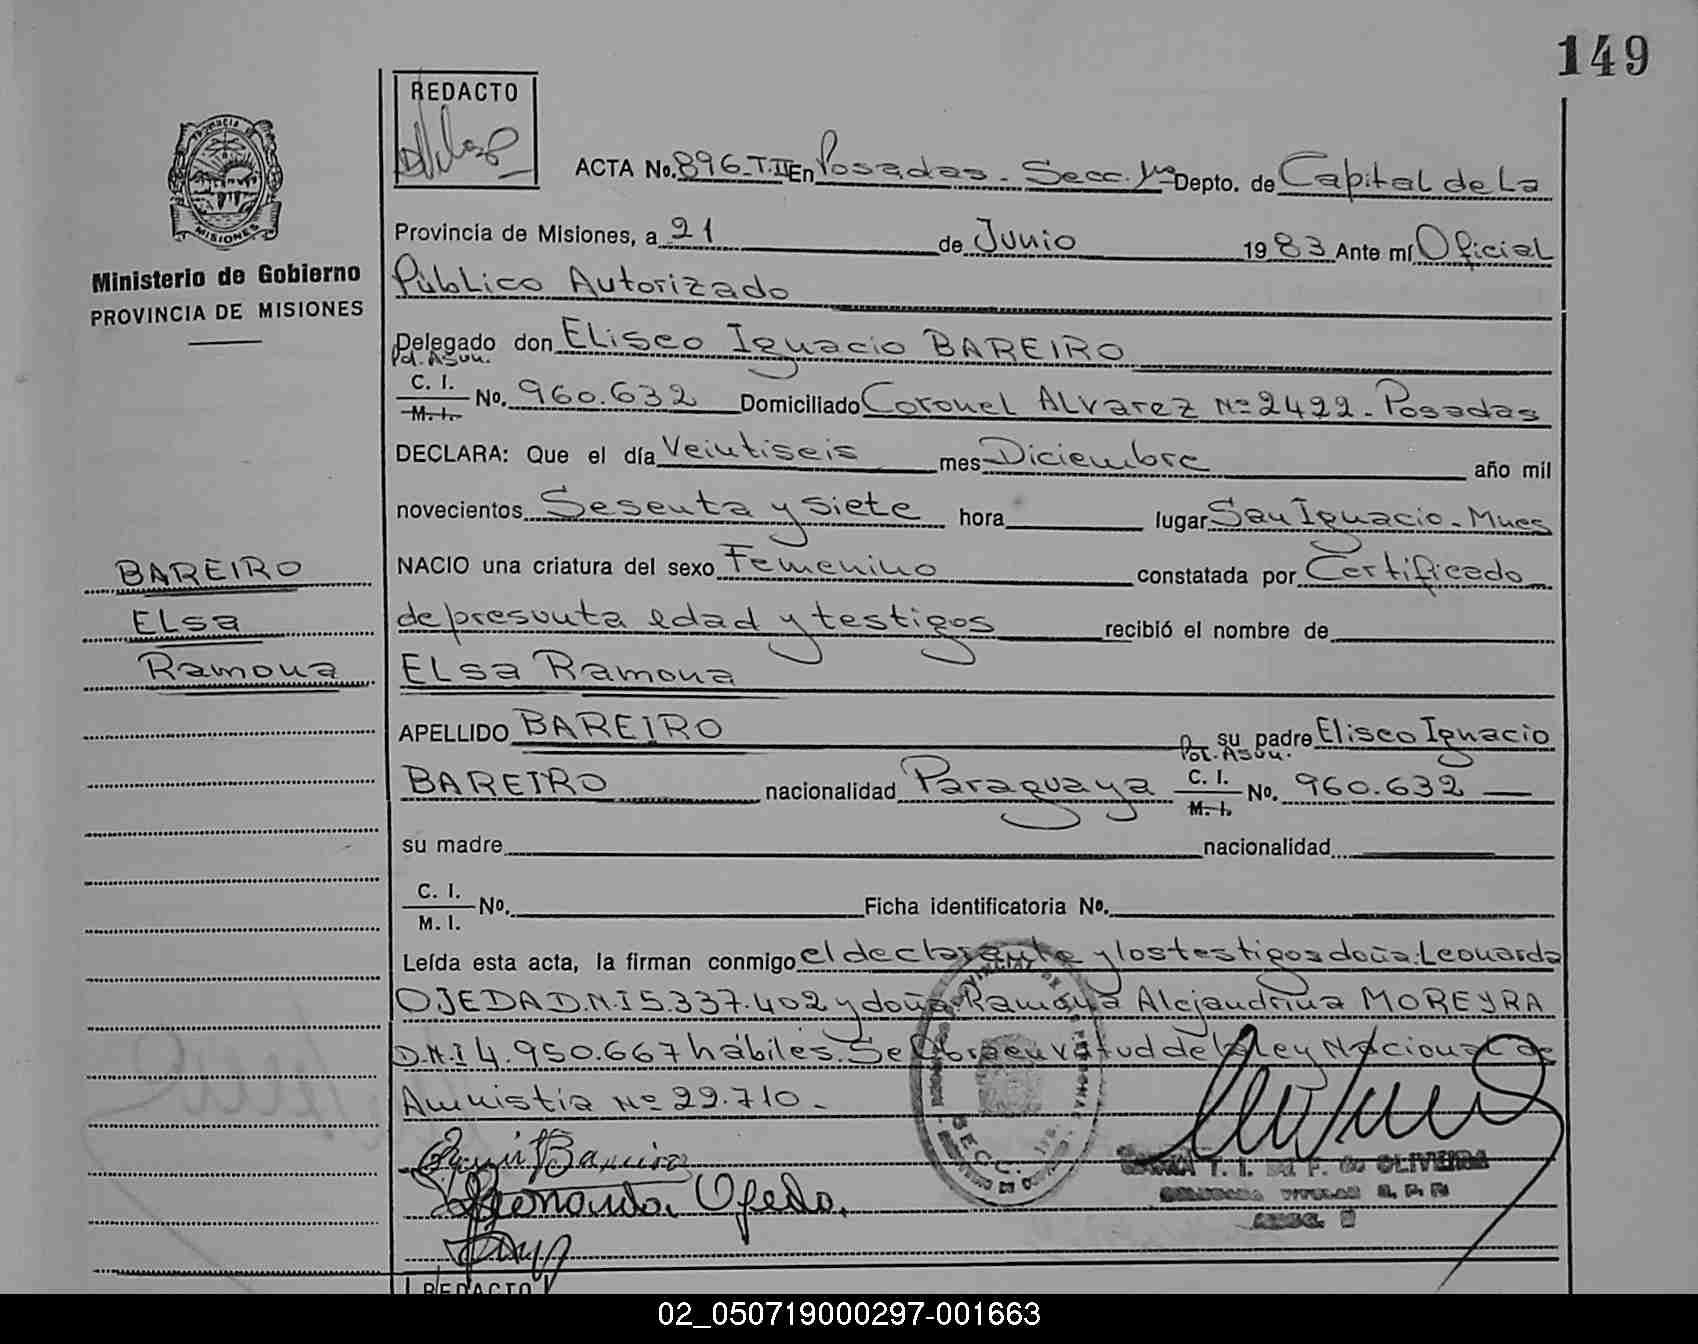 149
REDACTO
ACTA No. 896-T.II En Posadas - Secc. 1ra Depto. de Capital de La
Provincia de Misiones, a 21 de Junio 1983 Ante mí Oficial
Público Autorizado
Ministerio de Gobierno
PROVINCIA DE MISIONES
MISIONES
Delegado don Eliseo Ignacio BAREIRO
Pol. Asun.
C. I.
M. I. No. 960.632 Domiciliado Coronel Alvarez Nº 2422 - Posadas
DECLARA: Que el día Veintiseis mes Diciembre año mil
novecientos Sesenta y Siete hora lugar San Ignacio - Mnes
NACIO una criatura del sexo Femenino constatada por Certificado
de presunta edad y testigos recibió el nombre de
Elsa Ramona
BAREIRO
Elsa
Ramona
APELLIDO BAREIRO su padre Eliseo Ignacio
Pol. Asun.
BAREIRO nacionalidad Paraguaya C. I. M. I. No. 960.632
su madre nacionalidad
C. I.
M. I. No. Ficha identificatoria No.
Leída esta acta, la firman conmigo el declarante y los testigos doña: Leonarda
OJEDA D.N.I 5.337.402 y doña Ramona Alejandrina MOREYRA
D.N.I 4.950.667 hábiles. Se labra en virtud de la Ley Nacional de
Amnistia Nº 22.710.-
SECC. 1ra.
Leonarda Ojeda.
T. I. DE F. de OLIVEIRA
DELEGADA TITULAR R. P. P.
REDACTO
02_050719000297-001663